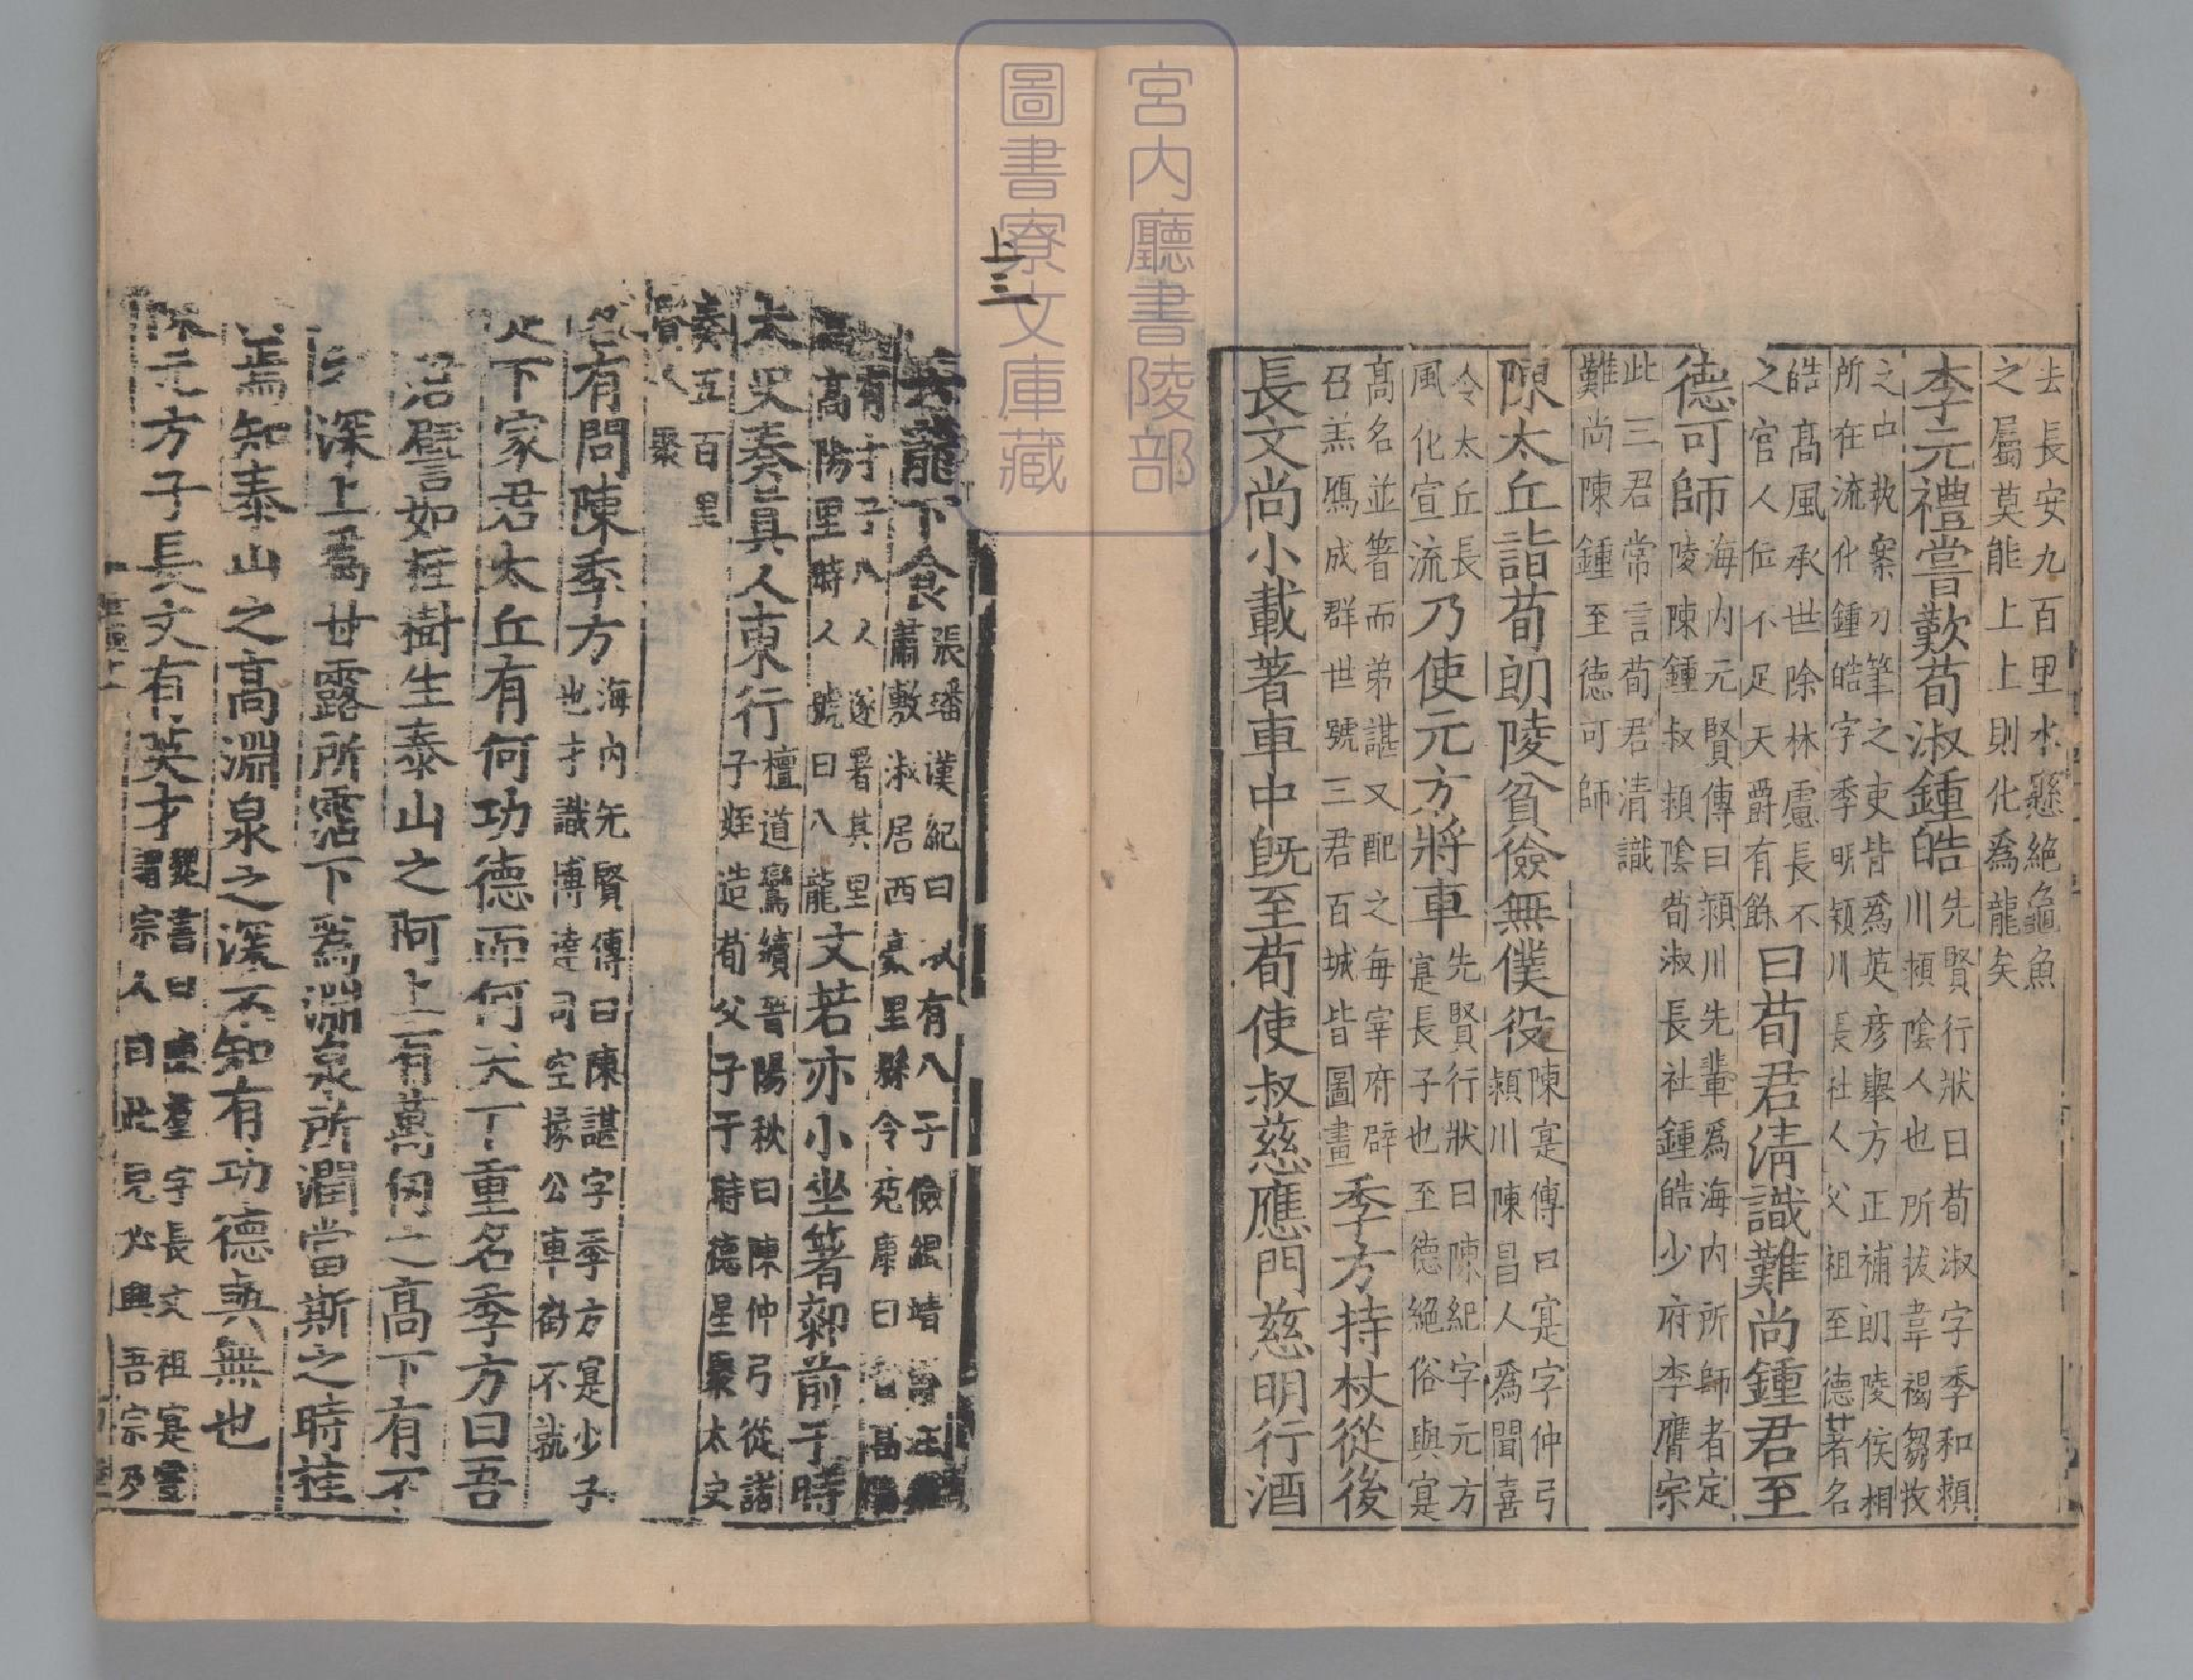 去長安九百里水懸絕龜魚
之屬莫能上上則化為龍矣
李元禮嘗歎荀淑鍾皓
先賢行狀曰荀淑字季和潁
川潁陰人也所拔韋褐芻牧
之中執案刀筆之吏皆為英彥舉方正補朗陵侯相
所在流化鍾皓字季明潁川長社人父祖至德著名
皓高風承世除林慮長不
之官人位不足天爵有餘
曰荀君清識難尚鍾君至
德可師
海內元賢傳曰潁川先輩為海內所師者定
陵陳鍾叔潁陰荀淑長社鍾皓少府李膺宗
此三君常言荀君清識
難尚陳鍾至德可師
陳太丘詣荀朗陵貧儉無僕役
陳寔傳曰寔字仲弓
潁川陳昌人為聞喜
令太丘長
風化宣流
乃使元方將車
先賢行狀曰陳紀字元方
寔長子也至德絕俗與寔
高名並著而弟諶又配之每宰府辟
召羔鴈成群世號三君百城皆圖畫
季方持杖從後
長文尚小載著車中旣至荀使叔慈應門慈明行酒
龍下食
張璠漢紀曰淑有八子儉緄靖
肅敷淑居西豪里縣令苑康曰
有才子八人遂署其里
高陽里時人號曰八龍
文若亦小坐著厀前于時
太史奏真人東行
檀道鸞續晉陽秋曰陳仲弓從諸
子姪造荀父子于時德星聚太史
奏五百里
賢人聚
有問陳季方
海內先賢傳曰陳諶字季方寔少子
也才識博達司空掾公車徵不就
足下家君太丘有何功德而何天下重名季方曰吾
君譬如桂樹生泰山之阿上有萬仞之高下有不
深上為甘露所霑下為淵泉所潤當斯之時桂
焉知泰山之高淵泉之深不知有功德與無也
陳元方子長文有英才
魏書曰陳羣字長文祖寔嘗
謂宗人曰此兒必興吾宗乃
上三
宮內廳書陵部
圖書寮文庫藏